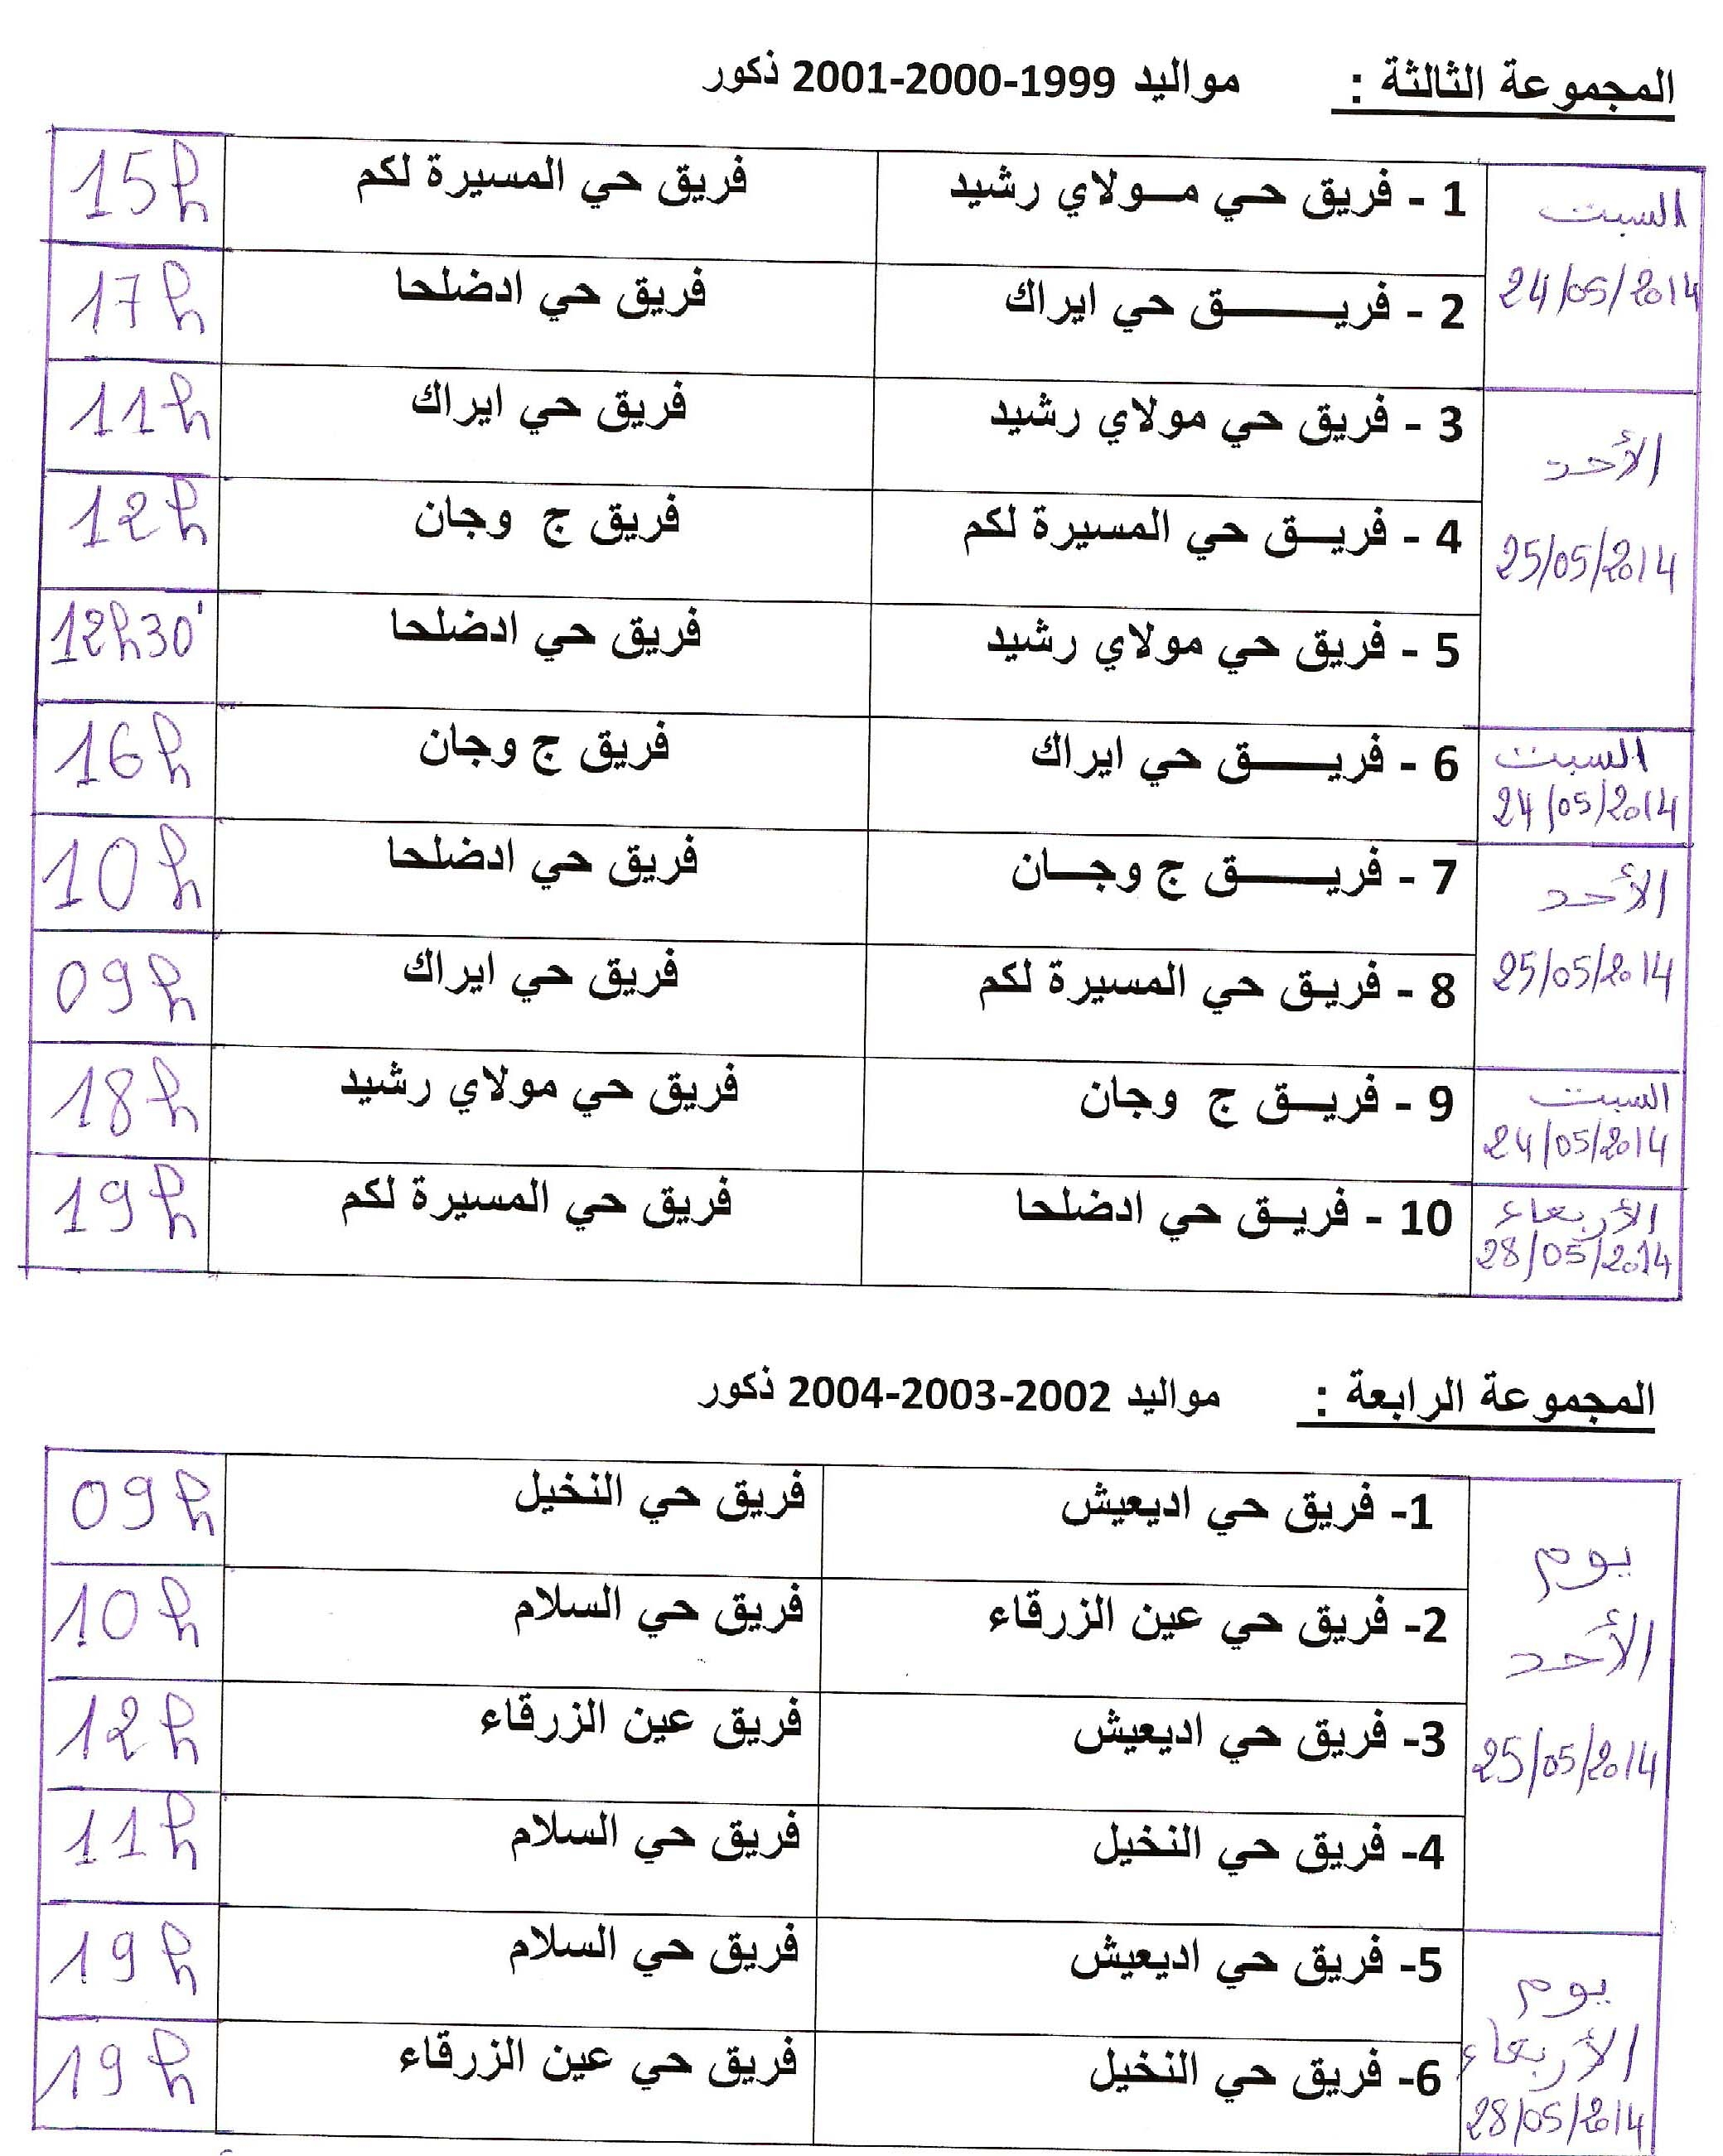 المجموعة الثالثة : مواليد 1999-2000-2001 ذكور
السبت
24/05/2014
1 - فريق حي مولاي رشيد فريق حي المسيرة لكم 15h
2 - فريق حي ايراك فريق حي ادضلحا 17h
الأحد
25/05/2014
3 - فريق حي مولاي رشيد فريق حي ايراك 11h
4 - فريق حي المسيرة لكم فريق ج وجان 12h
5 - فريق حي مولاي رشيد فريق حي ادضلحا 12h30'
السبت
24/05/2014
6 - فريق حي ايراك فريق ج وجان 16h
الأحد
25/05/2014
7 - فريق ج وجان فريق حي ادضلحا 10h
8 - فريق حي المسيرة لكم فريق حي ايراك 09h
السبت
24/05/2014
9 - فريق ج وجان فريق حي مولاي رشيد 18h
الأربعاء
28/05/2014
10 - فريق حي ادضلحا فريق حي المسيرة لكم 19h
المجموعة الرابعة : مواليد 2002-2003-2004 ذكور
يوم
الأحد
25/05/2014
1- فريق حي اديعيش فريق حي النخيل 09h
2- فريق حي عين الزرقاء فريق حي السلام 10h
3- فريق حي اديعيش فريق عين الزرقاء 12h
4- فريق حي النخيل فريق حي السلام 11h
يوم
الأربعاء
28/05/2014
5- فريق حي اديعيش فريق حي السلام 19h
6- فريق حي النخيل فريق حي عين الزرقاء 19h